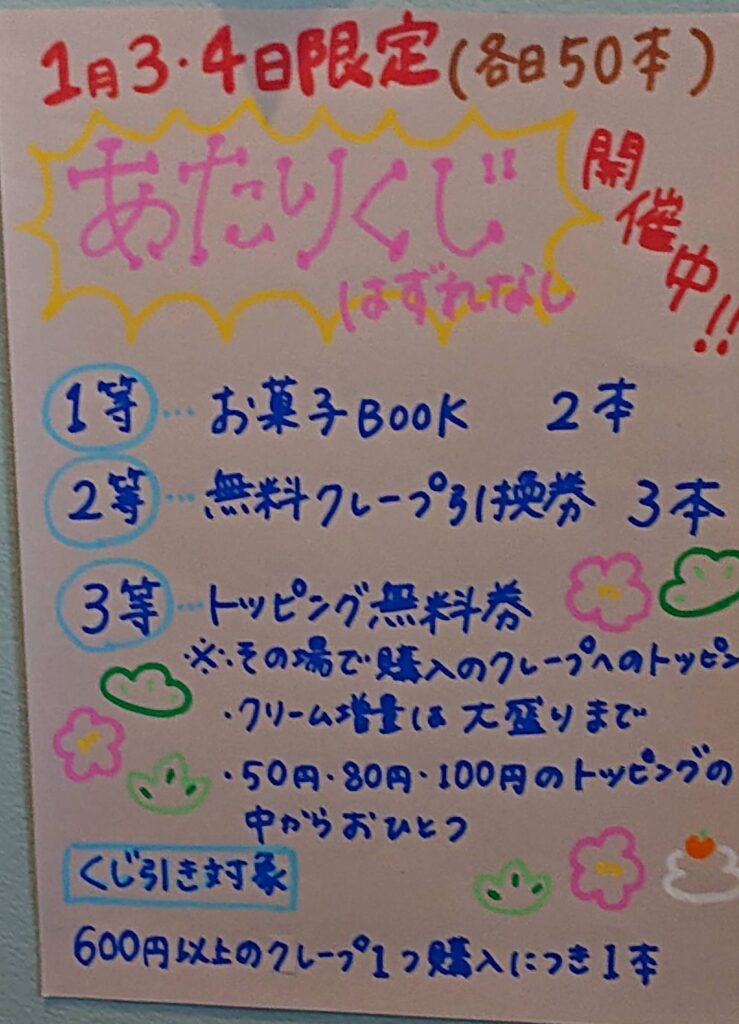 1月3・4日限定(各日50本)
あたりくじ!!
はずれなし
開催中!!
1等…お菓子BOOK 2本
2等…無料クレープ引換券 3本
3等…トッピング無料券
※その場で購入のクレープへのトッピン
・クリーム増量は大盛りまで
・50円・80円・100円のトッピングの
中からおひとつ
くじ引き対象
600円以上のクレープ1つ購入につき1本